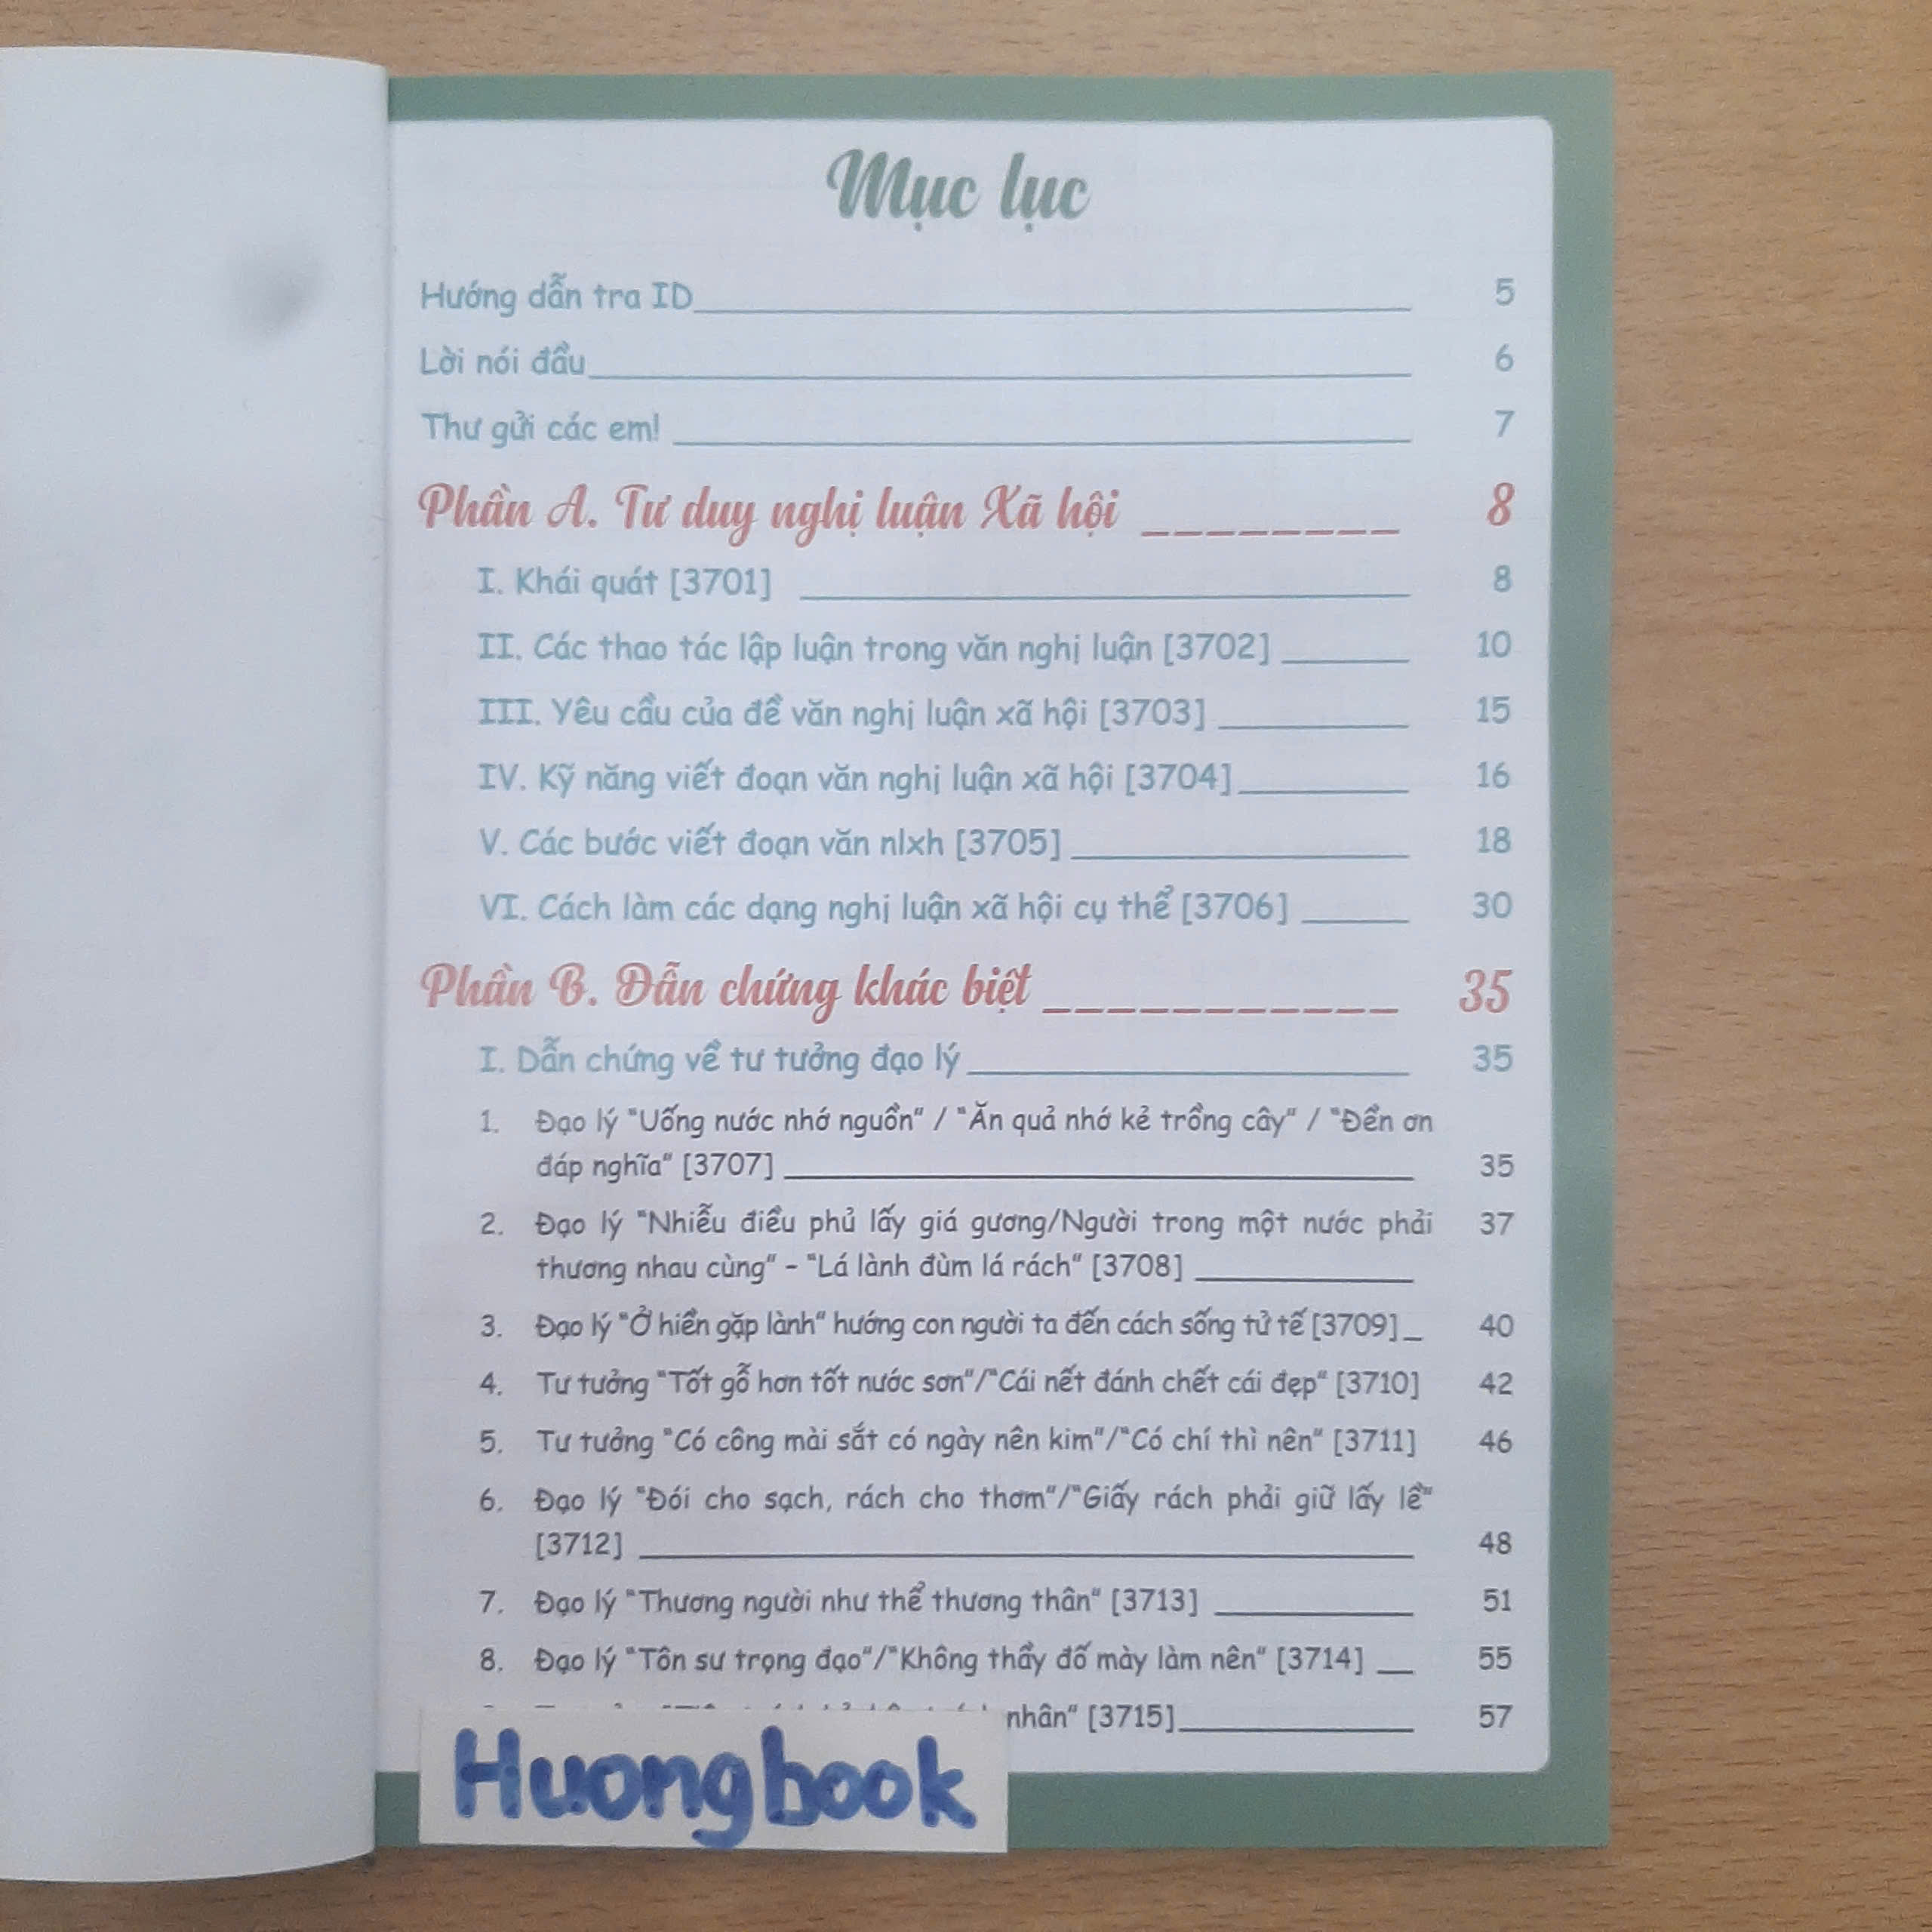 Mục lục
Hướng dẫn tra ID 5
Lời nói đầu 6
Thư gửi các em! 7
Phần A. Tư duy nghị luận Xã hội 8
I. Khái quát [3701] 8
II. Các thao tác lập luận trong văn nghị luận [3702] 10
III. Yêu cầu của đề văn nghị luận xã hội [3703] 15
IV. Kỹ năng viết đoạn văn nghị luận xã hội [3704] 16
V. Các bước viết đoạn văn nlxh [3705] 18
VI. Cách làm các dạng nghị luận xã hội cụ thể [3706] 30
Phần B. Dẫn chứng khác biệt 35
I. Dẫn chứng về tư tưởng đạo lý 35
1. Đạo lý "Uống nước nhớ nguồn" / "Ăn quả nhớ kẻ trồng cây" / "Đền ơn
đáp nghĩa" [3707] 35
2. Đạo lý "Nhiễu điều phủ lấy giá gương/Người trong một nước phải 37
thương nhau cùng" - "Lá lành đùm lá rách" [3708]
3. Đạo lý "Ở hiền gặp lành" hướng con người ta đến cách sống tử tế [3709] 40
4. Tư tưởng "Tốt gỗ hơn tốt nước sơn"/"Cái nết đánh chết cái đẹp" [3710] 42
5. Tư tưởng "Có công mài sắt có ngày nên kim"/"Có chí thì nên" [3711] 46
6. Đạo lý "Đói cho sạch, rách cho thơm"/"Giấy rách phải giữ lấy lề"
[3712] 48
7. Đạo lý "Thương người như thể thương thân" [3713] 51
8. Đạo lý "Tôn sư trọng đạo"/"Không thầy đố mày làm nên" [3714] 55
nhân" [3715] 57
Huongbook